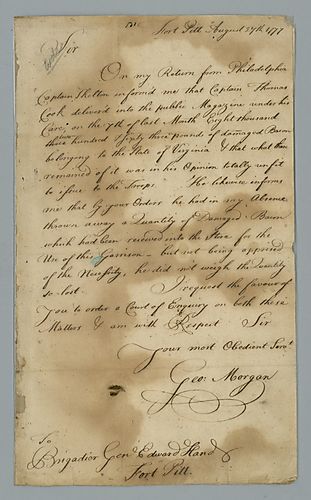 Fort Pitt August 27th 1777
Sir
On my Return from Philadelphia
Captain Shelton informed me that Captain Thomas
Cook deliver'd into the publick Magazine under his
Care, on the 7th of last Month Eight thousand
three hundred & sixty three pounds of damaged Bacon
belonging to the State of Virginia & that what then
remained of it was in his Opinion totally unfit
to issue to the Troops. He likewise informs
me that by your Orders he had in my Absence
thrown away a Quantity of Damaged Bacon
which had been received into the Store for the
Use of this Garrison - but not being apprised
of the Necessity, he did not weigh the Quantity
so lost.
I request the favour of
you to order a Court of Enquiry on both these
Matters & am with Respect Sir
Your most Obedient Servt
Geo: Morgan
To
Brigadier Genl Edward Hand
Fort Pitt